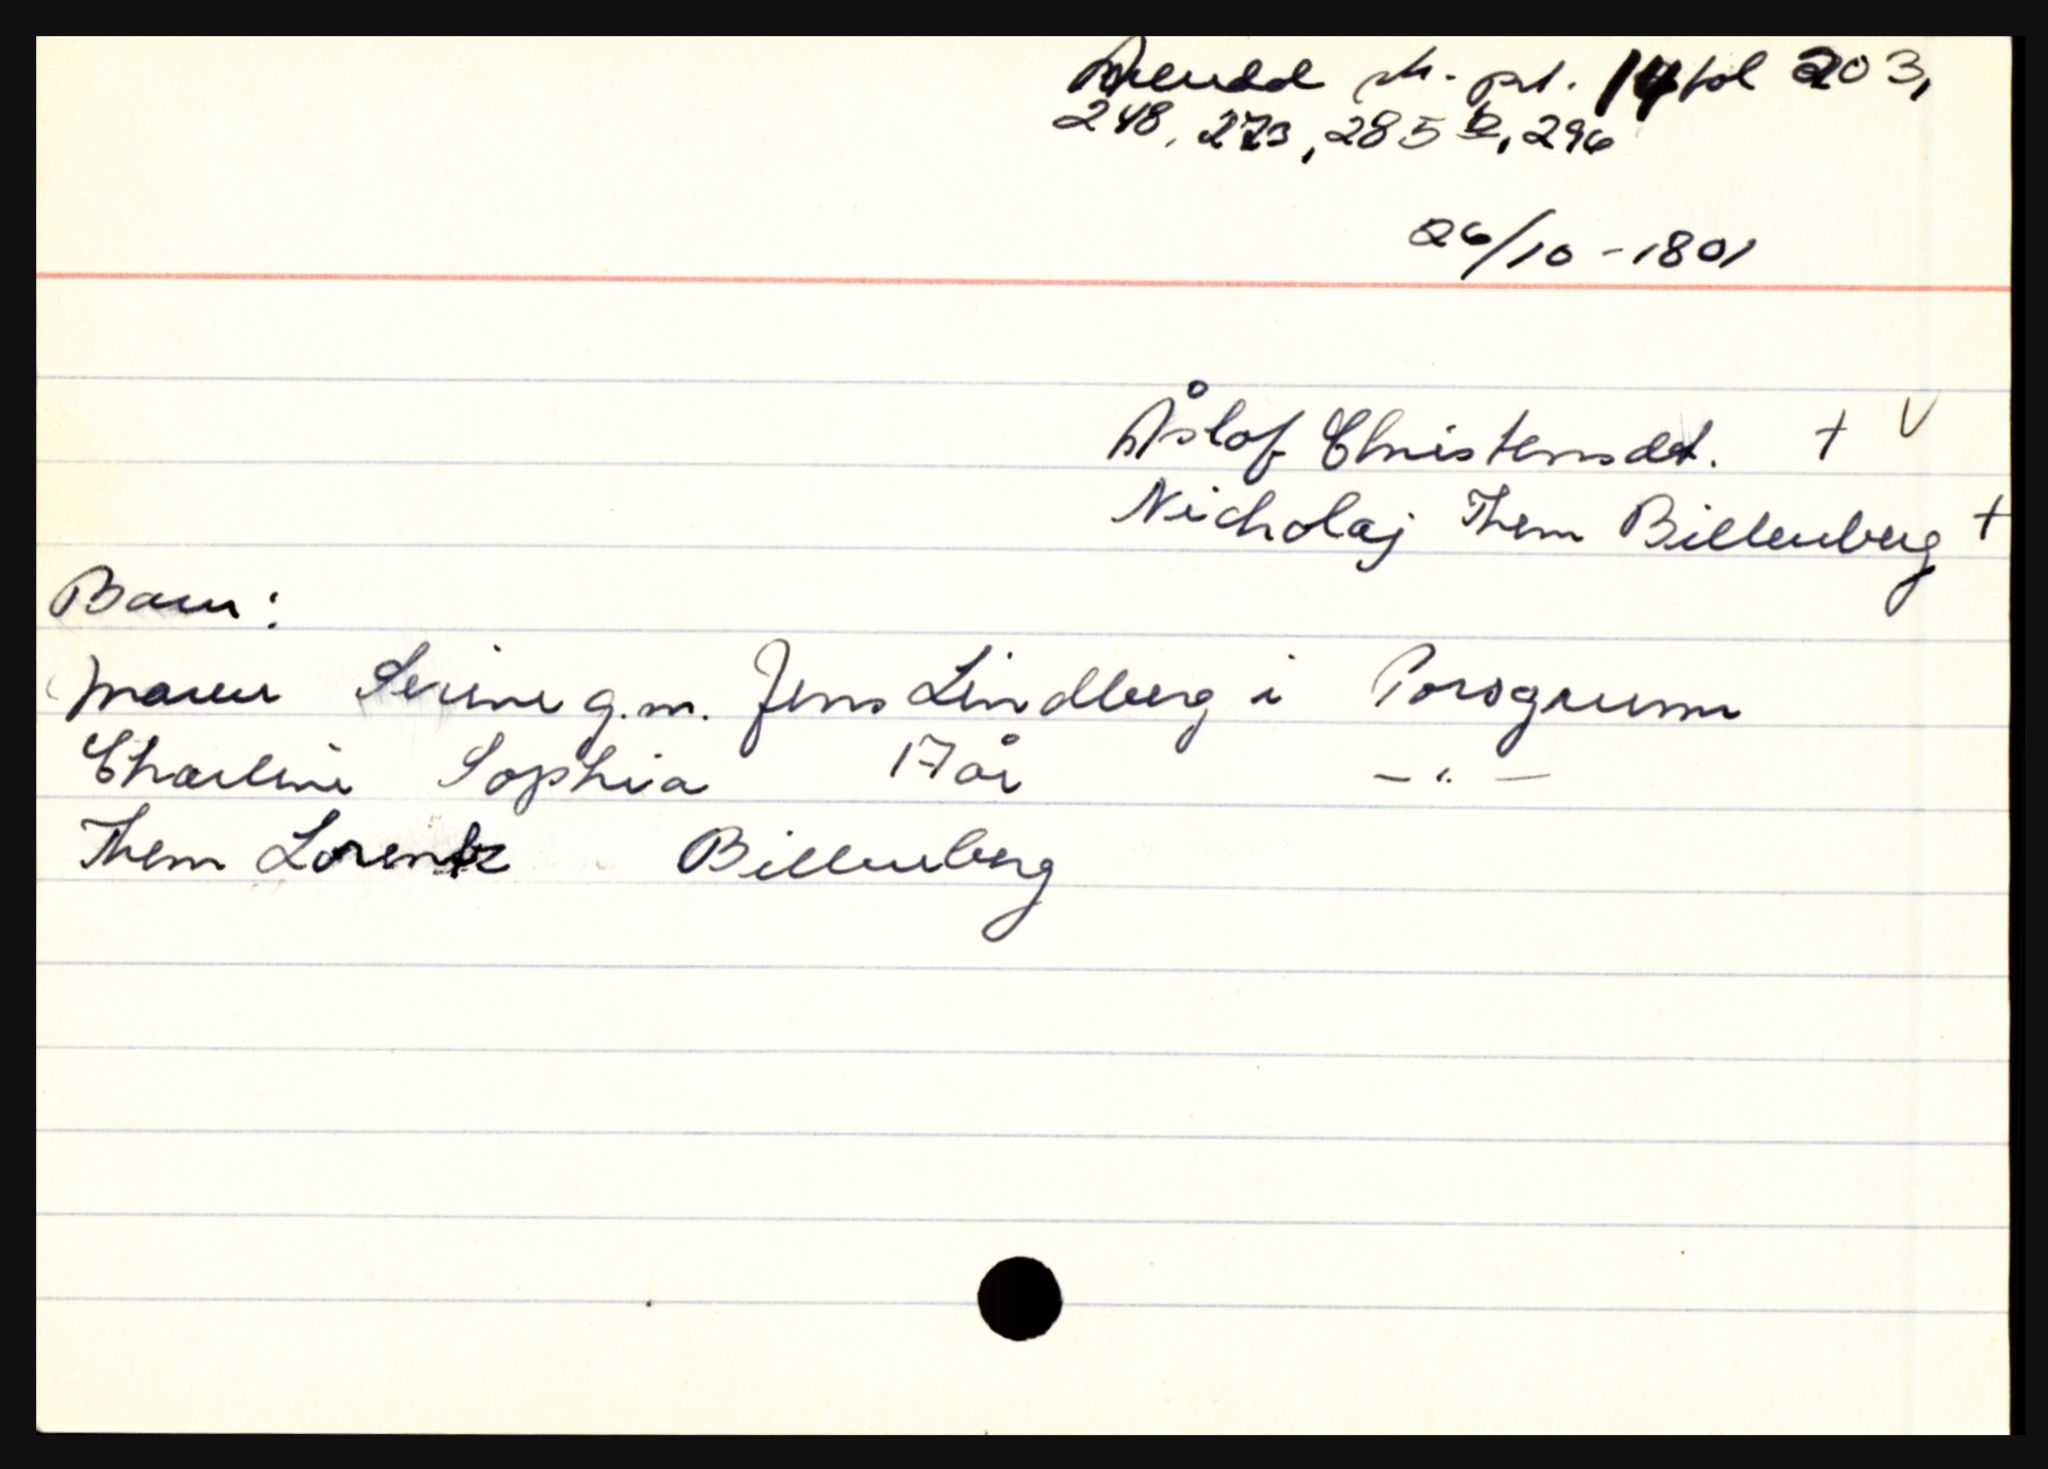 Arendal sk. prt. 14 fol 203,
248, 273, 285 b, 296
26/10 - 1801
Åslof Christensdt. + V
Nicholaj Them Billenberg +
Barn:
Maren Serine g.m. Jens Lindberg i Porsgrunn
Charline Sophia 17 år - " -
Them Lorentz Billenberg